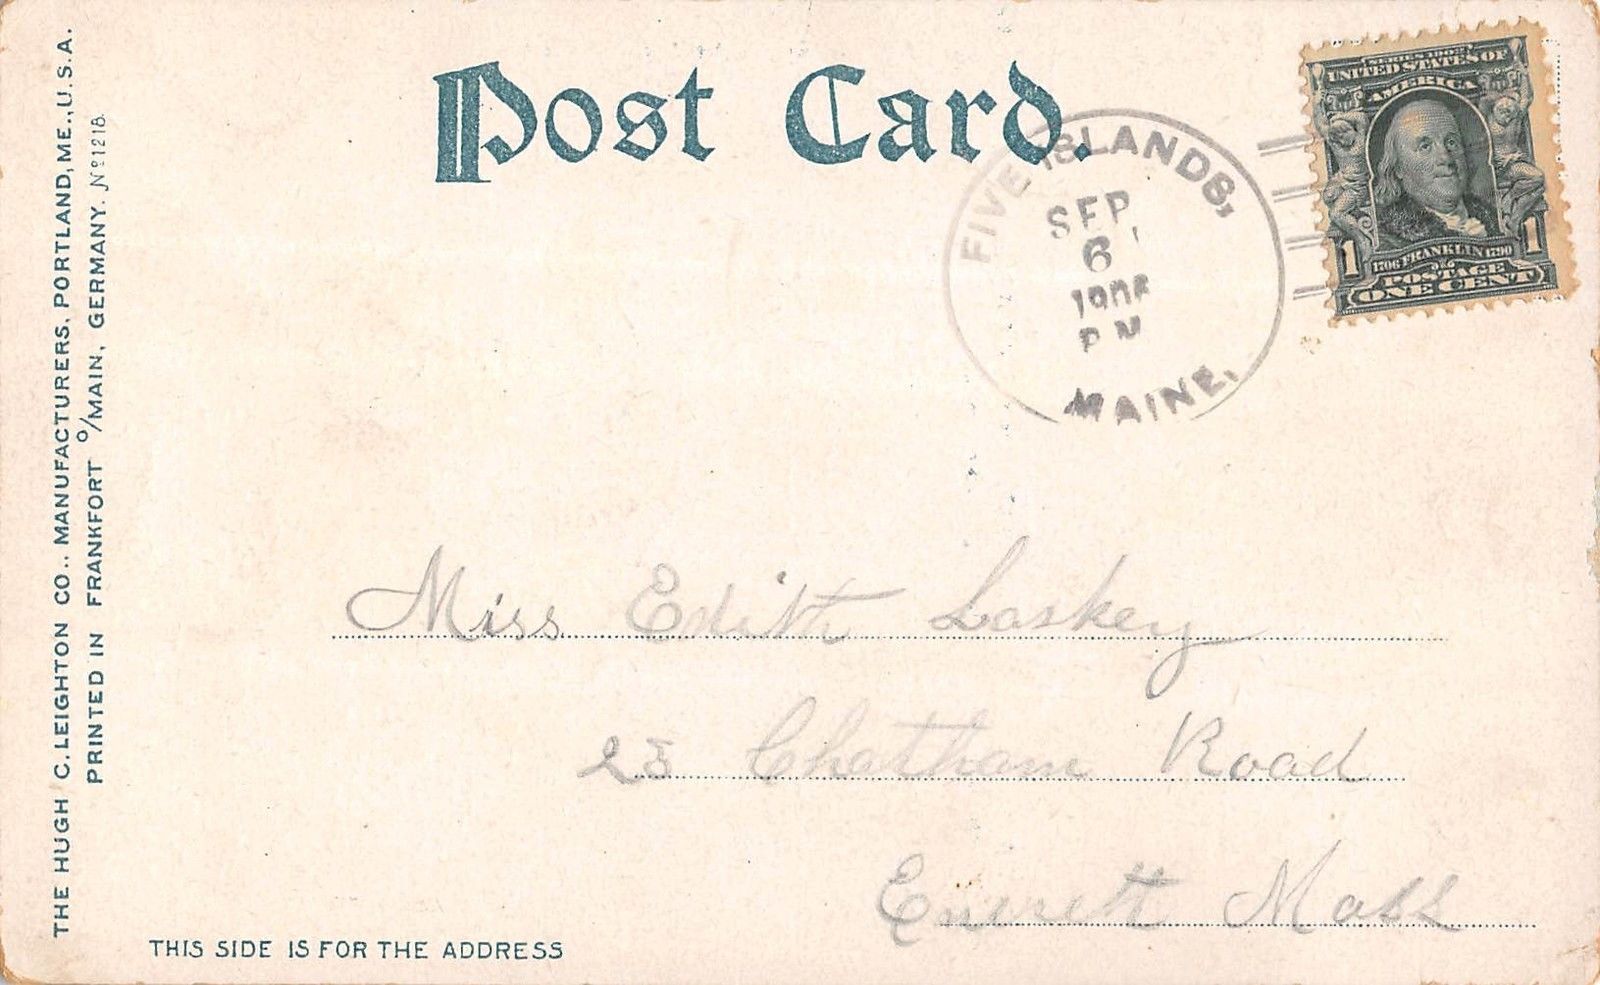 Post Card.
THE HUGH C. LEIGHTON CO., MANUFACTURERS, PORTLAND, ME., U.S.A.
PRINTED IN FRANKFORT o/MAIN, GERMANY. No 1218.
FIVE ISLANDS,
SEP
6
PM
MAINE.
SERIES 1902
UNITED STATES OF
AMERICA
1 1
1706 FRANKLIN 1790
POSTAGE
ONE CENT
Miss Edith Laskey
Chatham Road
Everett Mass
THIS SIDE IS FOR THE ADDRESS